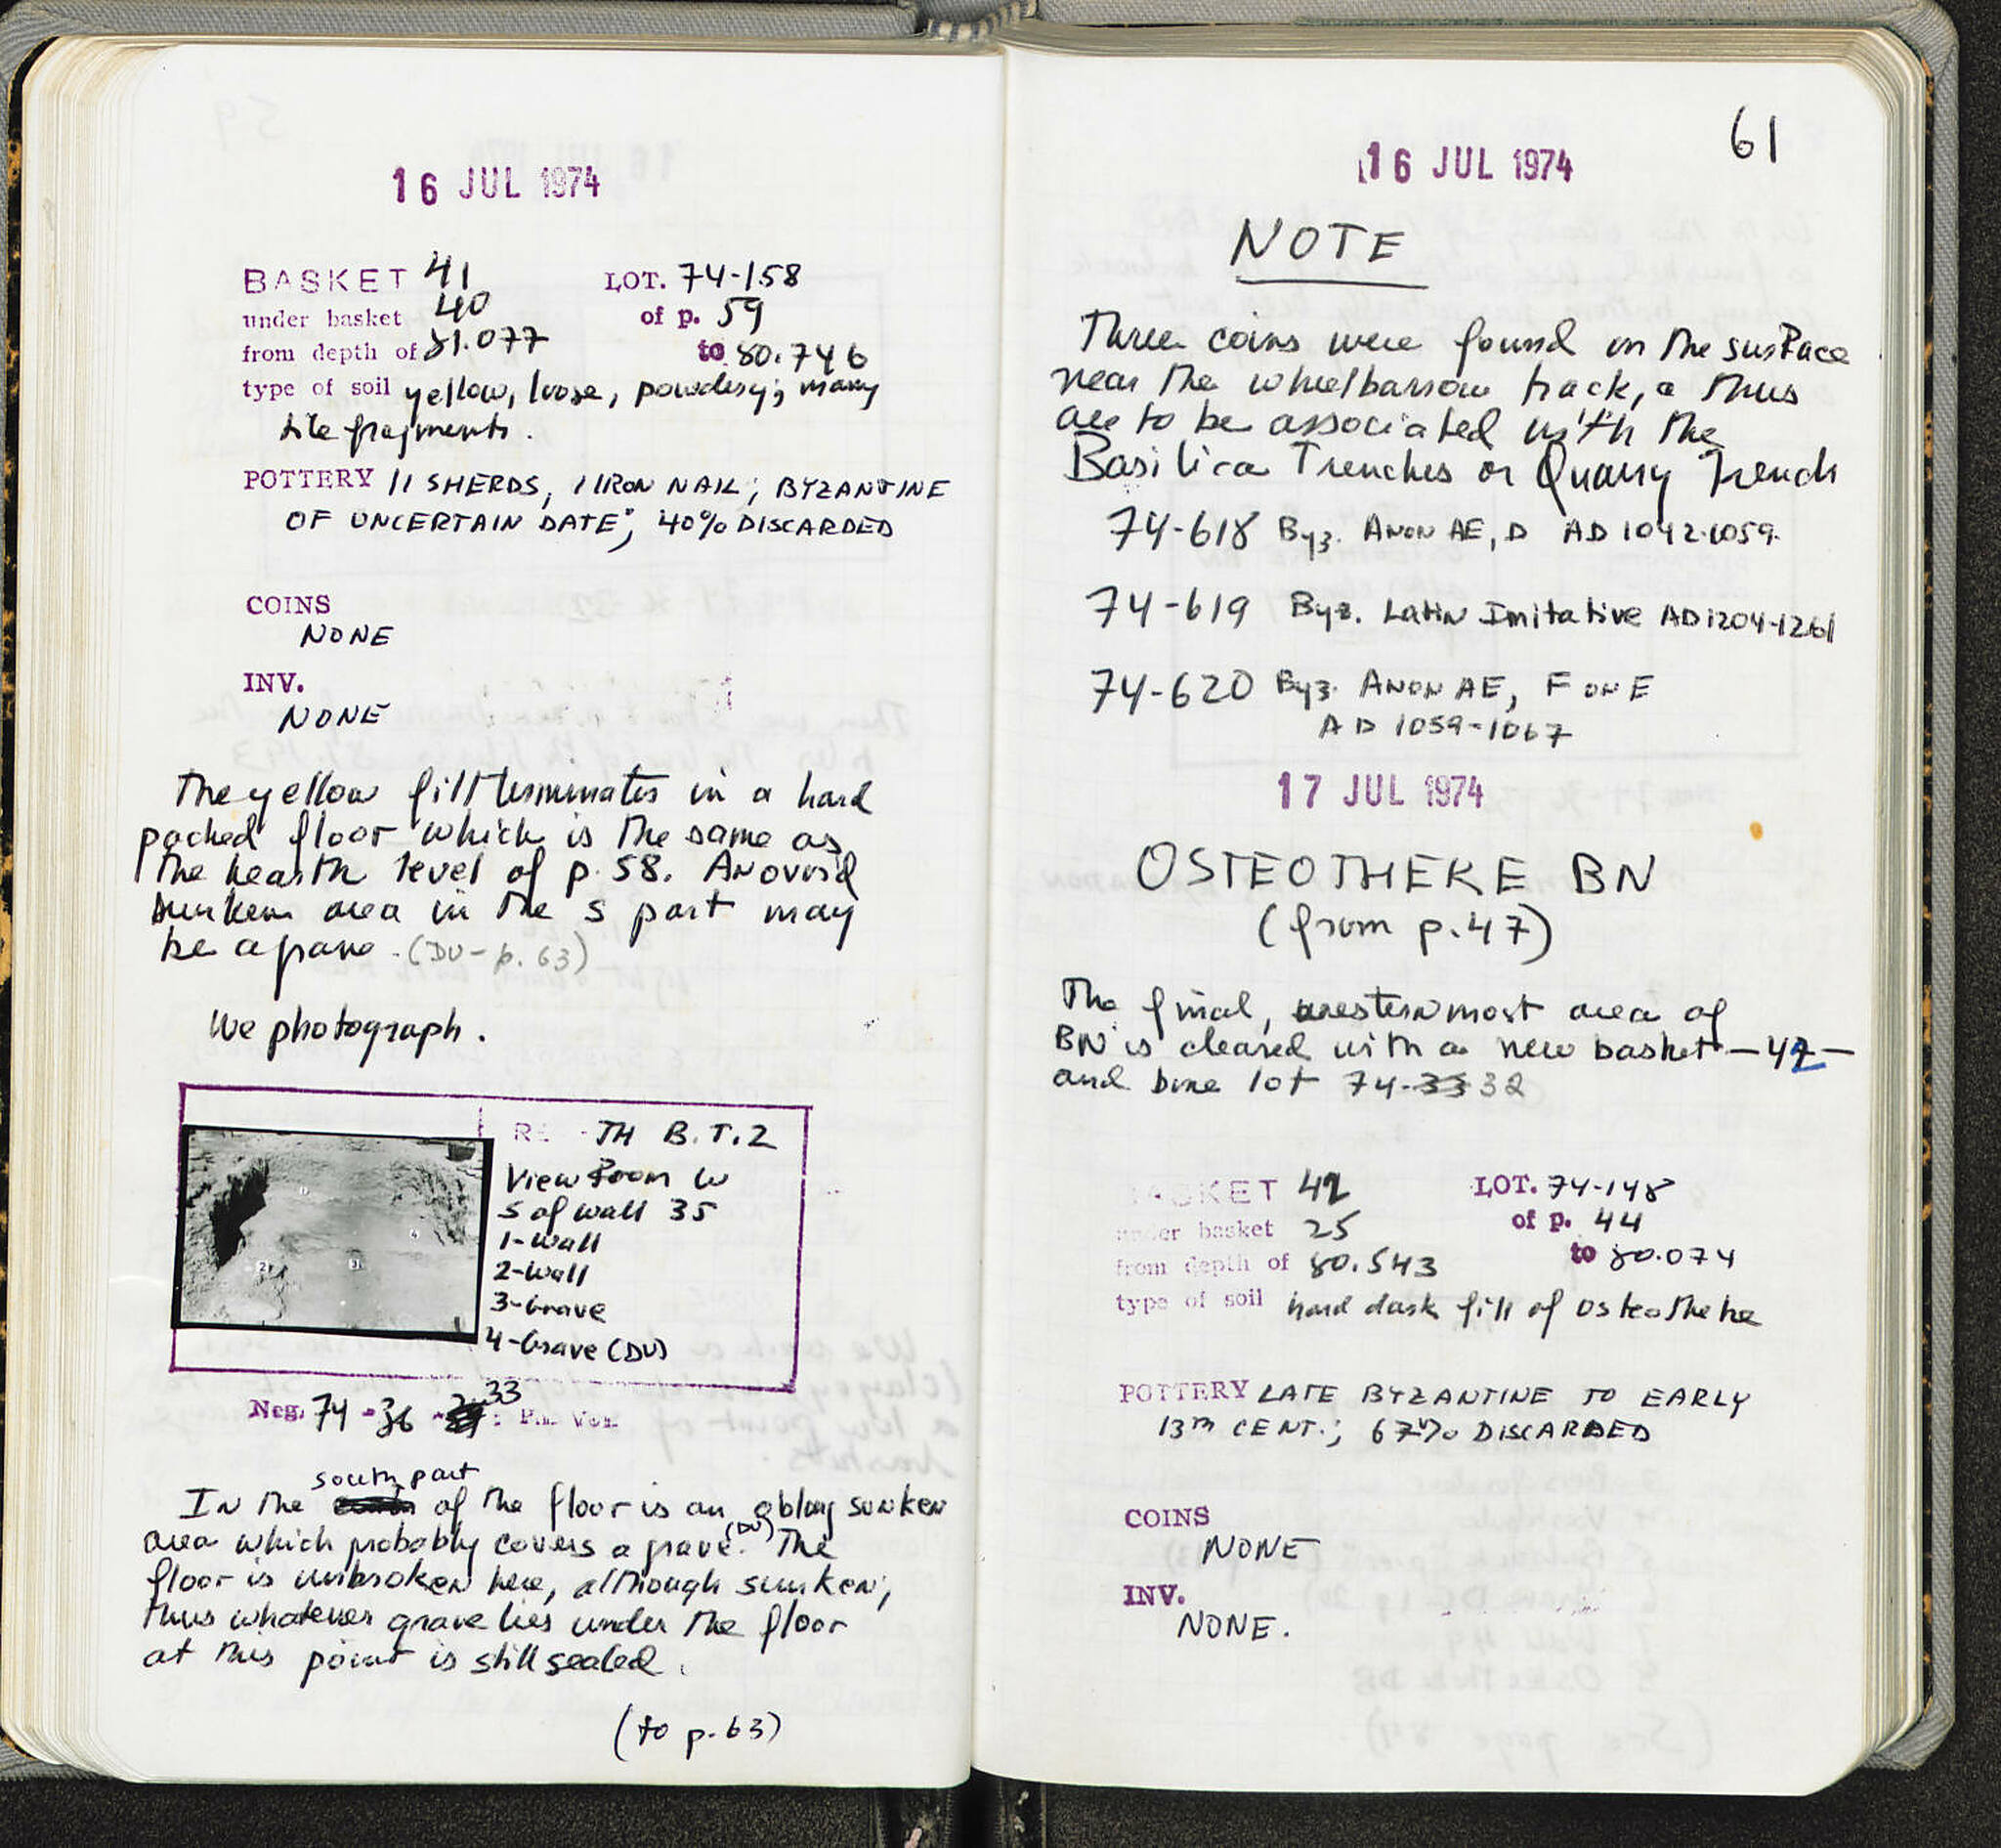 16 JUL 1974
BASKET 41 LOT. 74-158
under basket 40 of p. 59
from depth of 81.077 to 80.746
type of soil yellow, loose, powdery; many
tile fragments.
POTTERY 11 SHERDS, 1 IRON NAIL; BYZANTINE
OF UNCERTAIN DATE; 40% DISCARDED
COINS
NONE
INV.
NONE
The yellow fill terminates in a hard
packed floor which is the same as
the hearth level of p. 58. An ovoid
sunken area in the S part may
be a grave. (DU-p. 63)
We photograph.
TH B.T.2
View From W
S of wall 35
1-Wall
2-Wall
3-Grave
4-Grave (DU)
Neg. 74-36-33
south part
In the of the floor is an oblong sunken
area which probably covers a grave. (DU) The
floor is unbroken here, although sunken;
thus whatever grave lies under the floor
at this point is still sealed.
(to p. 63)
61
16 JUL 1974
NOTE
Three coins were found on the surface
near the wheelbarrow track, & thus
are to be associated with the
Basilica Trenches or Quarry Trench
74-618 Byz. Anon AE, D AD 1042-1059.
74-619 Byz. Latin Imitative AD 1204-1261
74-620 Byz. Anon AE, F on E
AD 1059-1067
17 JUL 1974
OSTEOTHEKE BN
(from p. 47)
The final, westernmost area of
BN is cleared with a new basket -42-
and bone lot 74-33 32
BASKET 42 LOT. 74-148
under basket 25 of p. 44
from depth of 80.543 to 80.074
type of soil hard dark fill of Osteotheke
POTTERY LATE BYZANTINE TO EARLY
13TH CENT.; 67% DISCARDED
COINS
NONE
INV.
NONE.